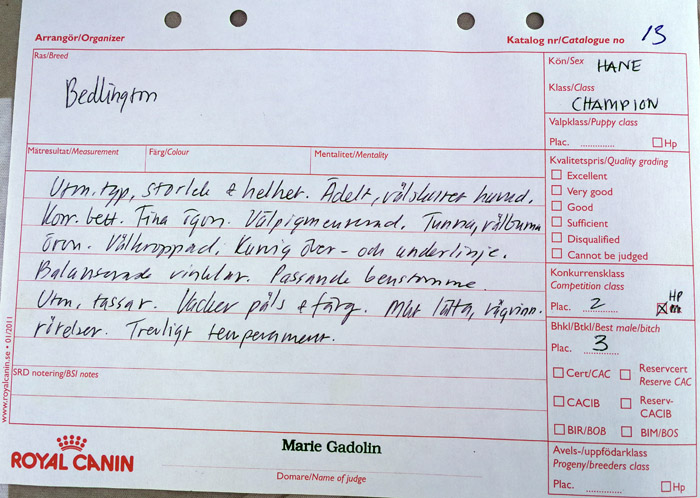 Arrangör/Organizer
Katalog nr/Catalogue no 13
Ras/Breed
Bedlington
Kön/Sex HANE
Klass/Class
CHAMPION
Valpklass/Puppy class
Plac. ............ Hp
Mätresultat/Measurement Färg/Colour Mentalitet/Mentality
Kvalitetspris/Quality grading
Excellent
Very good
Good
Sufficient
Disqualified
Cannot be judged
Utm. typ, storlek & helhet. Ädelt, välskuret huvud.
Korr. bett. Fina ögon. Välpigmenterad. Tunna, välburna
öron. Välkroppad. Kurvig över- och underlinje.
Balanserade vinklar. Passande benstomme.
Utm. tassar. Vacker päls & färg. Mkt lätta, vägvinn.
rörelser. Trevligt temperament.
Konkurrensklass
Competition class
Plac. 2 HP
Bhkl/Btkl/Best male/bitch
Plac. 3
Cert/CAC Reservcert
Reserve CAC
CACIB Reserv-
CACIB
BIR/BOB BIM/BOS
Avels-/uppfödarklass
Progeny/breeders class
Plac. ............ Hp
SRD notering/BSI notes
www.royalcanin.se • 01/2011
ROYAL CANIN
Marie Gadolin
Domare/Name of judge